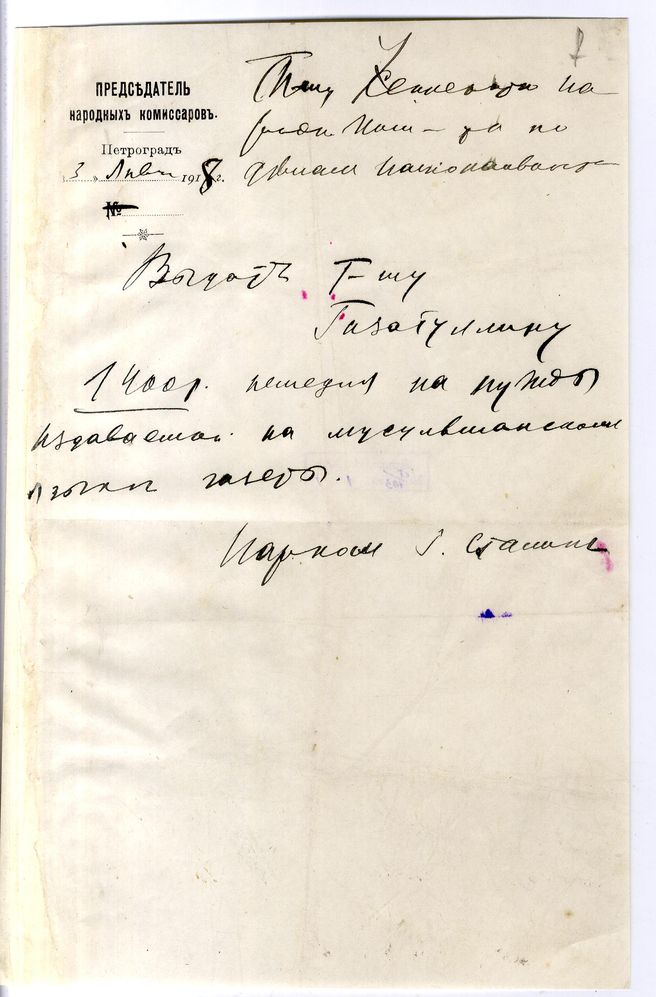 ПРЕДСѢДАТЕЛЬ
НАРОДНЫХЪ КОМИССАРОВЪ.
Петроградъ
3 Янв 1918 г.
№
Т-щу на
по
дѣлам национальност
Выдать Т-щу
Газатуллину
1400 р. на нужды
издаваемой на мусульманском
языке газеты.
Нарком I. Сталинъ